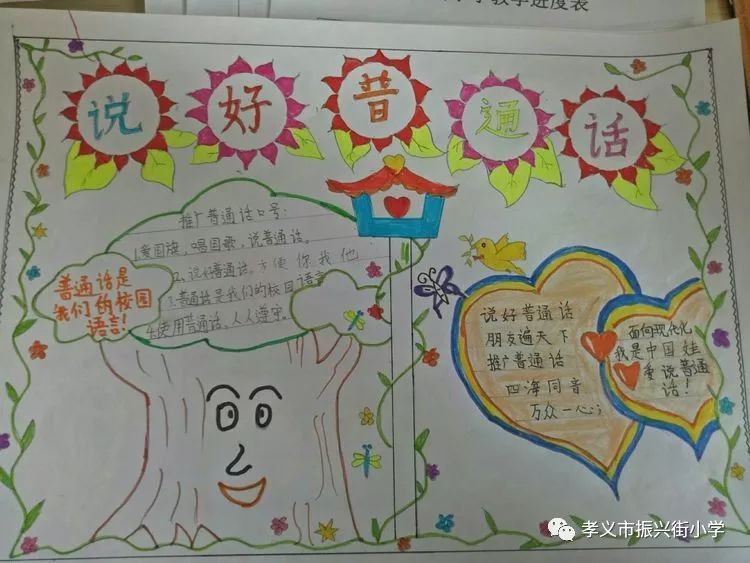 教学进度表
说好普通话
推广普通话口号:
1.爱国旗,唱国歌,说普通话。
2、说好普通话,方便你我他
3.普通话是我们的校园语言
4.使用普通话、人人遵守。
普通话是
我们的校园
语言!
说好普通话
朋友遍天下
推广普通话
四海同音
万众一心;
面向现代化
我是中国娃
爱说普通
话!
孝义市振兴街小学